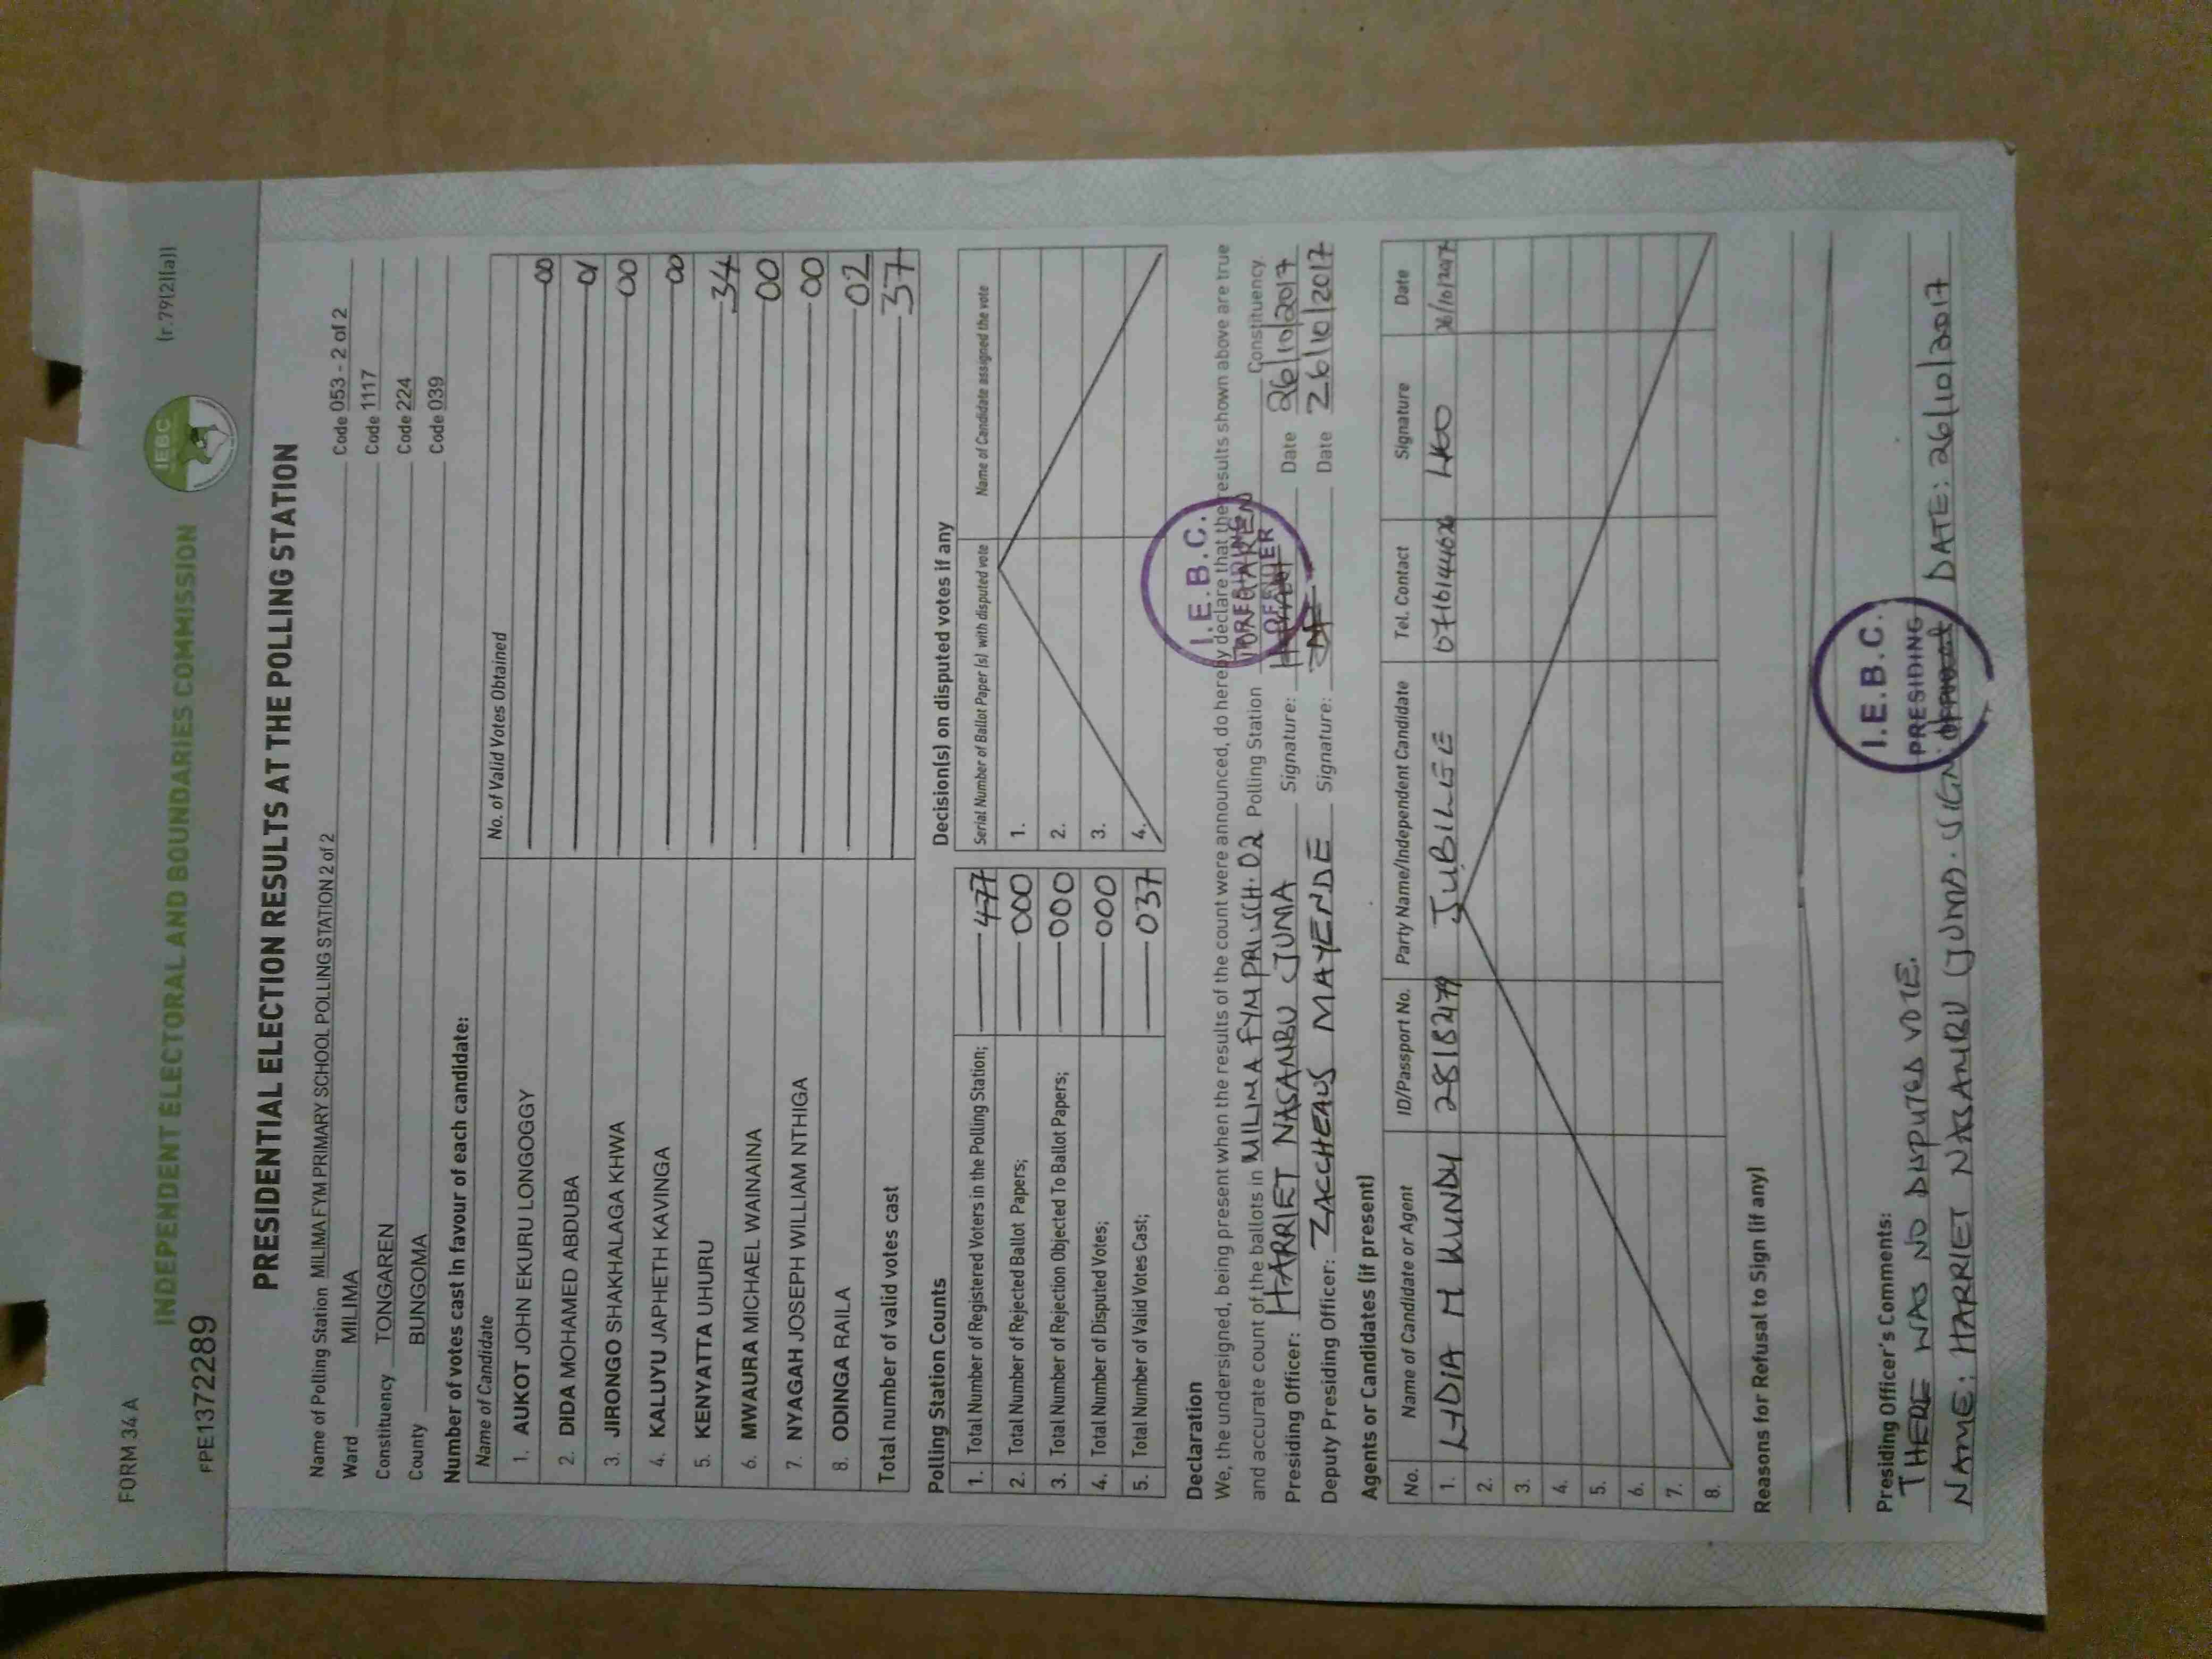 FORM 34 A
(r.79(2)(a))
IEBC
INDEPENDENT ELECTORAL AND BOUNDARIES COMMISSION
FPE1372289
PRESIDENTIAL ELECTION RESULTS AT THE POLLING STATION
Name of Polling Station MILIMA FYM PRIMARY SCHOOL POLLING STATION 2 of 2 Code 053 - 2 of 2
Ward MILIMA Code 1117
Constituency TONGAREN Code 224
County BUNGOMA Code 039
Number of votes cast in favour of each candidate:
Name of Candidate No. of Valid Votes Obtained
1. AUKOT JOHN EKURU LONGOGGY 00
2. DIDA MOHAMED ABDUBA 01
3. JIRONGO SHAKHALAGA KHWA 00
4. KALUYU JAPHETH KAVINGA 00
5. KENYATTA UHURU 34
6. MWAURA MICHAEL WAINAINA 00
7. NYAGAH JOSEPH WILLIAM NTHIGA 00
8. ODINGA RAILA 02
Total number of valid votes cast 37
Polling Station Counts
1. Total Number of Registered Voters in the Polling Station; 477
2. Total Number of Rejected Ballot Papers; 000
3. Total Number of Rejection Objected To Ballot Papers; 000
4. Total Number of Disputed Votes; 000
5. Total Number of Valid Votes Cast; 037
Decision(s) on disputed votes if any
Serial Number of Ballot Paper (s) with disputed vote Name of Candidate assigned the vote
1.
2.
3.
4.
Declaration
We, the undersigned, being present when the results of the count were announced, do hereby declare that the results shown above are true
and accurate count of the ballots in MILIMA FYM PRI. SCH. 02 Polling Station TONGAREN Constituency.
Presiding Officer: HARRIET NASAMBU JUMA Signature: Date 26/10/2017
Deputy Presiding Officer: ZACCHEAUS MAYENDE Signature: Date 26/10/2017
I.E.B.C.
PRESIDING
OFFICER
Agents or Candidates (if present)
No. Name of Candidate or Agent ID/Passport No. Party Name/Independent Candidate Tel. Contact Signature Date
1. LYDIA M KUNDU 28182479 JUBILEE 26/10/2017
2.
3.
4.
5.
6.
7.
8.
Reasons for Refusal to Sign (if any)
Presiding Officer's Comments:
THERE WAS NO DISPUTED VOTE.
NAME: HARRIET NASAMBU JUMA. SIGN: DATE: 26/10/2017
I.E.B.C.
PRESIDING